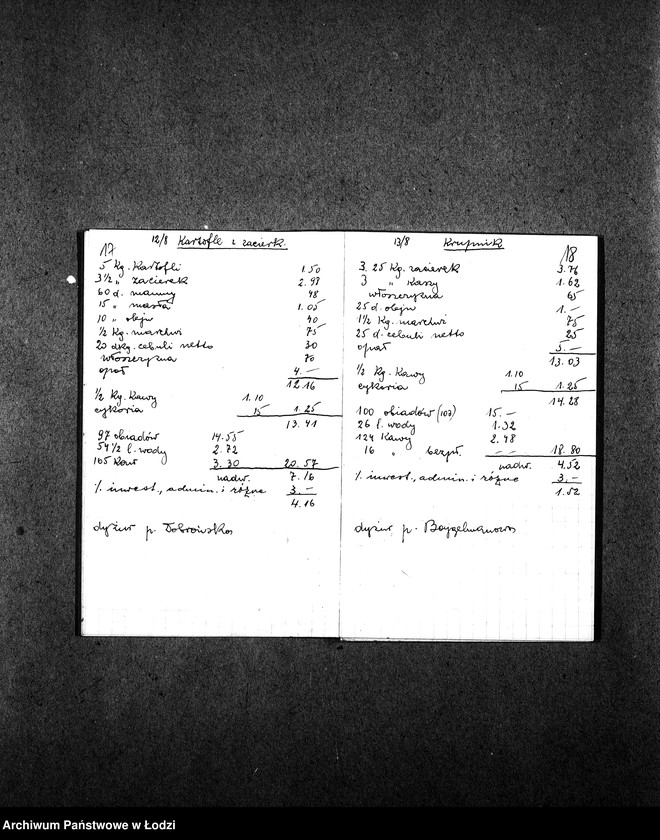 17
12/8 Kartofle i zacierk.
5 Kg. Kartofli 1.50
3 1/2 „ zacierek 2.93
60 d. manny 48
15 „ masła 1.05
10 „ oleju 40
1/2 Kg. marchwi 75
20 dkg. cebuli netto 30
włoszczyzna 70
opał 4.—
12.16
1/2 Kg. Kawy 1.10
cykoria 15 1.25
13.41
97 obiadów 14.55
54 1/2 l. wody 2.72
165 Kaw 3.30 20.57
nadw. 7.16
% inwest., admin. i różne 3.—
4.16
dyżur p.
18
13/8 Krupnik
3.25 Kg. zacierek 3.76
3 „ Kaszy 1.62
włoszczyzna 65
25 d. oleju 1.—
1 1/2 Kg. marchwi 75
25 d. cebuli netto 25
opał 5.—
13.03
1/2 Kg. Kawy 1.10
cykoria 15 1.25
14.28
100 obiadów (107) 15.—
26 l. wody 1.32
124 Kawy 2.48
16 „ bezpł. — — 18.80
nadw. 4.52
% inwest., admin. i różne 3.—
1.52
dyżur p.
Archiwum Państwowe w Łodzi